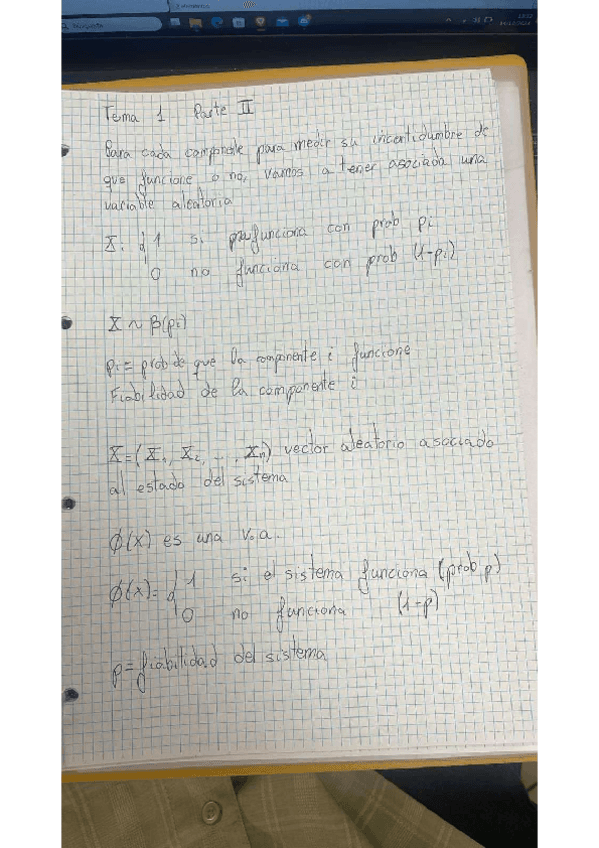 Tema 1 Parte II
Para cada componente para medir su incertidumbre de
que funcione o no, vamos a tener asociada una
variable aleatoria
Xi { 1 si funciona con prob pi
0 no funciona con prob (1-pi)
X ~ β(pi)
pi = prob de que la componente i funcione
Fiabilidad de la componente i
X = (X1, X2, ..., Xn) vector aleatorio asociado
al estado del sistema
ϕ(x) es una v.a.
ϕ(x) = { 1 si el sistema funciona (prob p)
0 no funciona (1-p)
p = fiabilidad del sistema